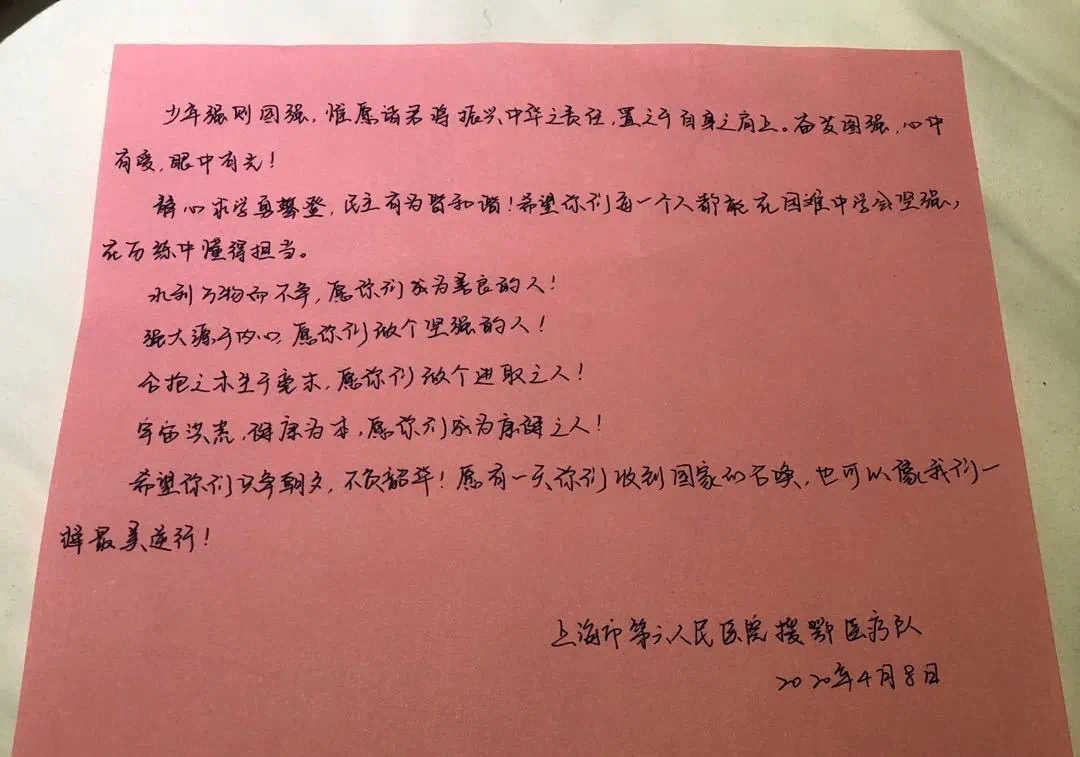 少年强则国强，惟愿诸君将振兴中华之责任，置之于自身之肩上。奋发图强，心中
有爱，眼中有光！
静心求学勇攀登，民主有为皆和谐！希望你们每一个人都能在困难中学会坚强，
在历练中懂得担当。
水利万物而不争，愿你们成为善良的人！
强大源于内心，愿你们做个坚强的人！
合抱之木生于毫末，愿你们做个进取之人！
宇宙洪荒，健康为本，愿你们成为康健之人！
希望你们只争朝夕，不负韶华！愿有一天你们收到国家的召唤，也可以像我们一
样最美逆行！
上海市第六人民医院援鄂医疗队
2020年4月8日